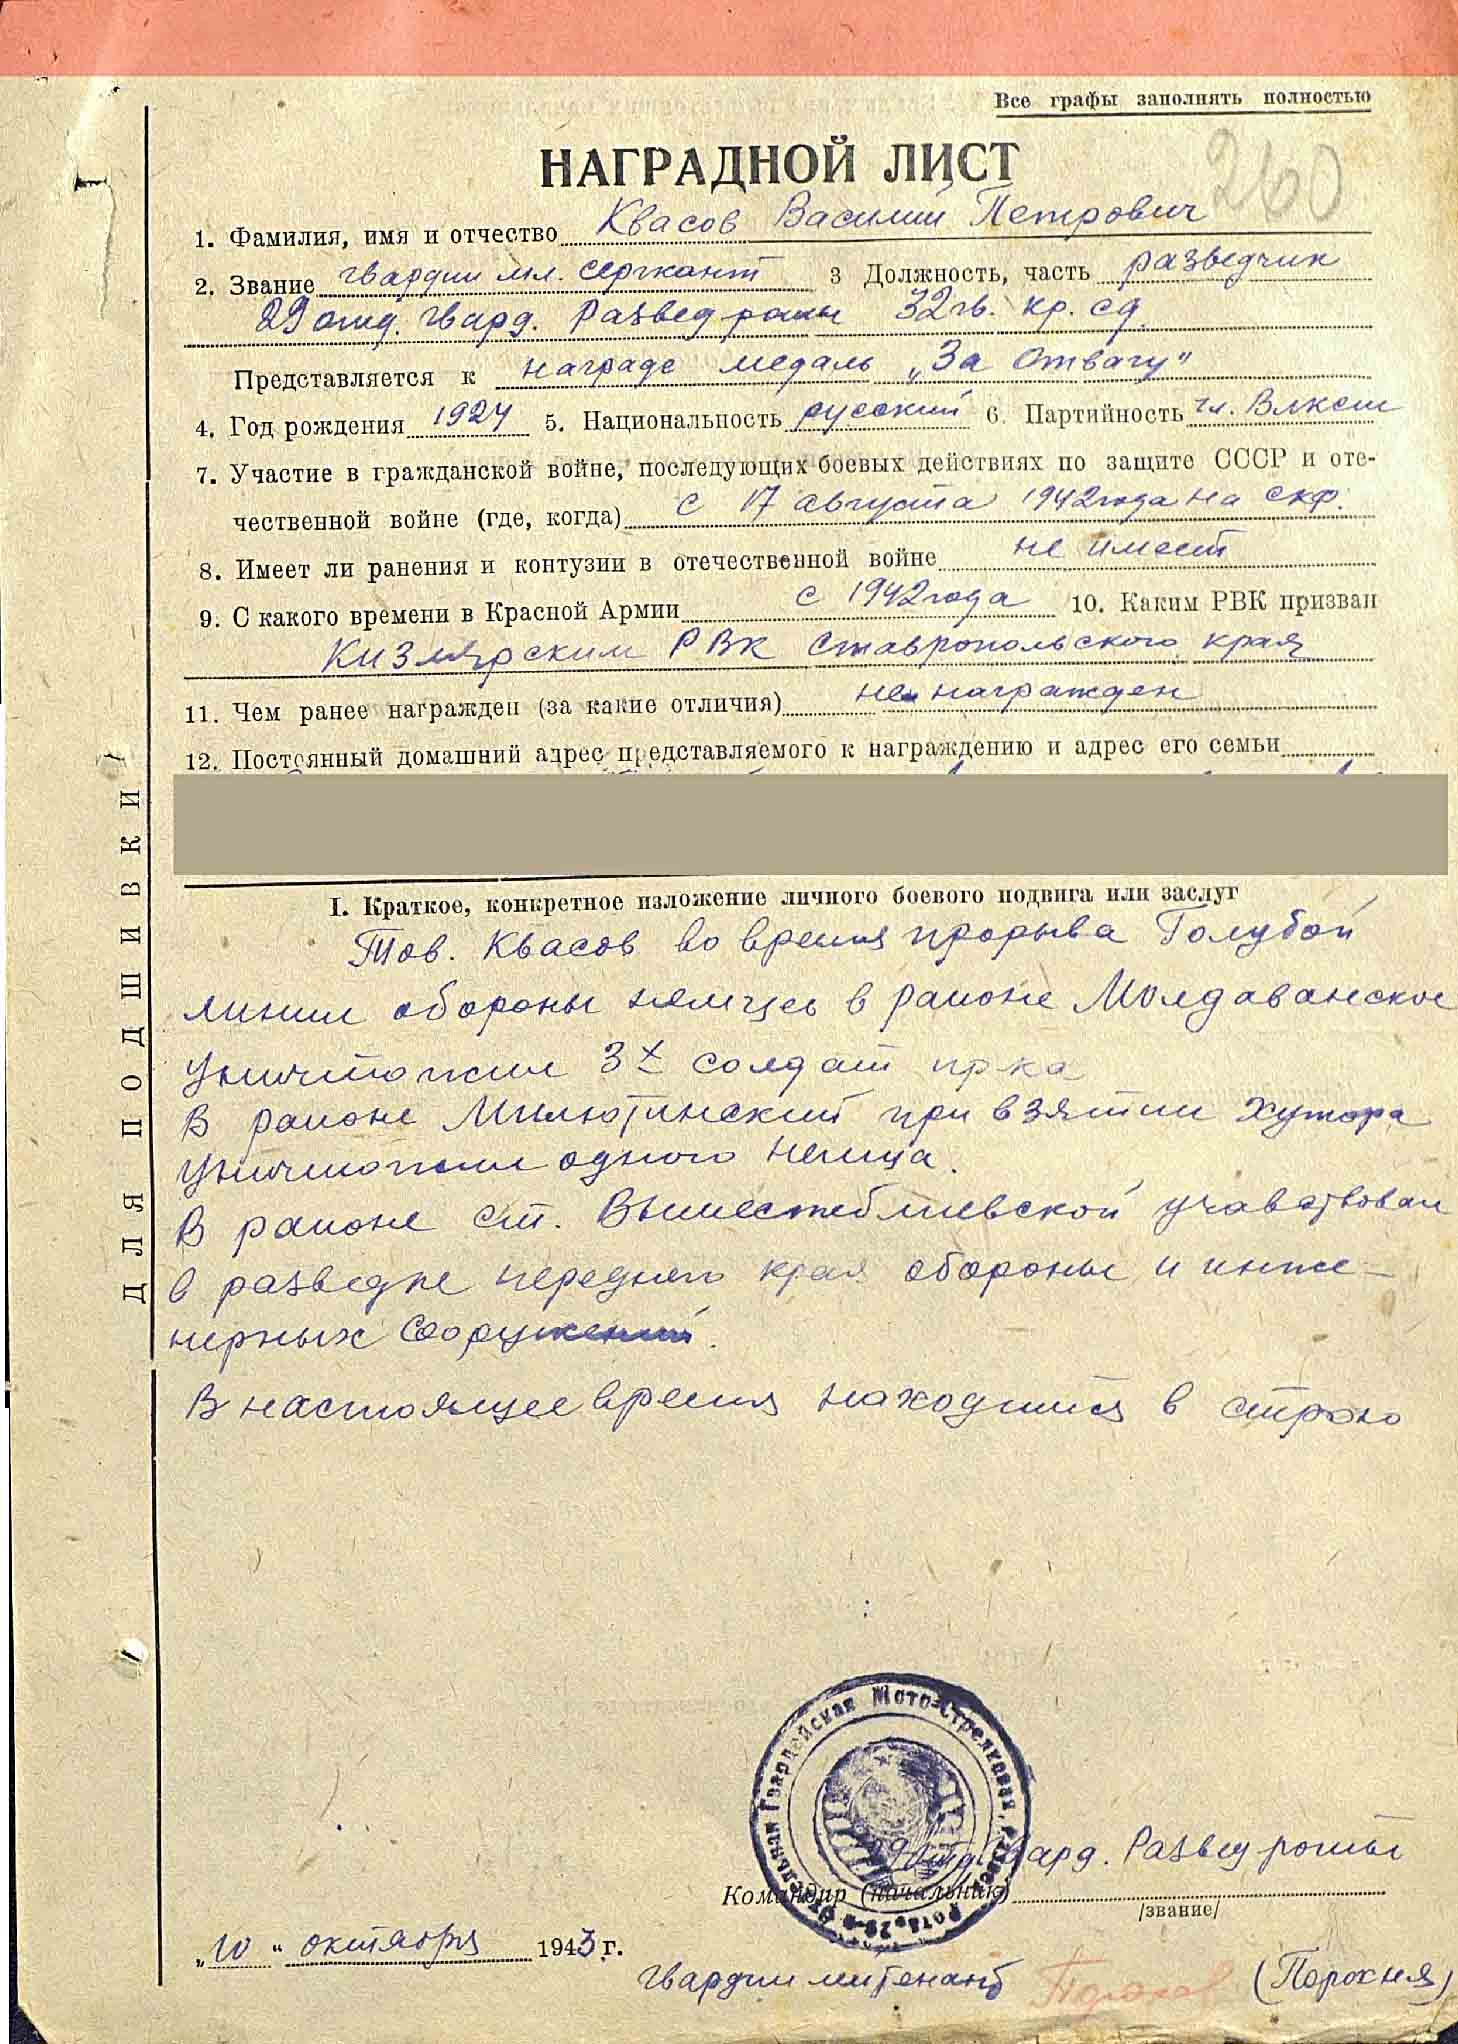 Все графы заполнять полностью
260
НАГРАДНОЙ ЛИСТ
1. Фамилия, имя и отчество Квасов Василий Петрович
2. Звание гвардии мл. сержант 3 Должность, часть разведчик
29 отд. гвард. Развед роты 32 гв. кр. сд.
Представляется к награде медаль „За Отвагу"
4. Год рождения 1924 5. Национальность русский 6. Партийность чл. Влксм
7. Участие в гражданской войне, последующих боевых действиях по защите СССР и оте-
чественной войне (где, когда) с 17 августа 1942 года на скф.
8. Имеет ли ранения и контузии в отечественной войне не имеет
9. С какого времени в Красной Армии с 1942 года 10. Каким РВК призван
Кизлярским РВК Ставропольского края
11. Чем ранее награжден (за какие отличия) не награжден
12. Постоянный домашний адрес представляемого к награждению и адрес его семьи
I. Краткое, конкретное изложение личного боевого подвига или заслуг
Тов. Квасов во время прорыва Голубой
линии обороны немцев в районе Молдаванское
уничтожил 3х солдат пр-ка
В районе Милютинский при взятии хутора
уничтожил одного немца.
В районе ст. Вышестеблиевской учавствовал
в разведке переднего края обороны и инже-
нерных сооружений.
В настоящее время находится в строю
ДЛЯ ПОДШИВКИ
Отдельная Гвардейская Мото-Стрелковая Рота
29 отд. гвард. Развед роты
Командир (начальник)
/звание/
„10" октября 1943 г.
гвардии лейтенант (Порохня)